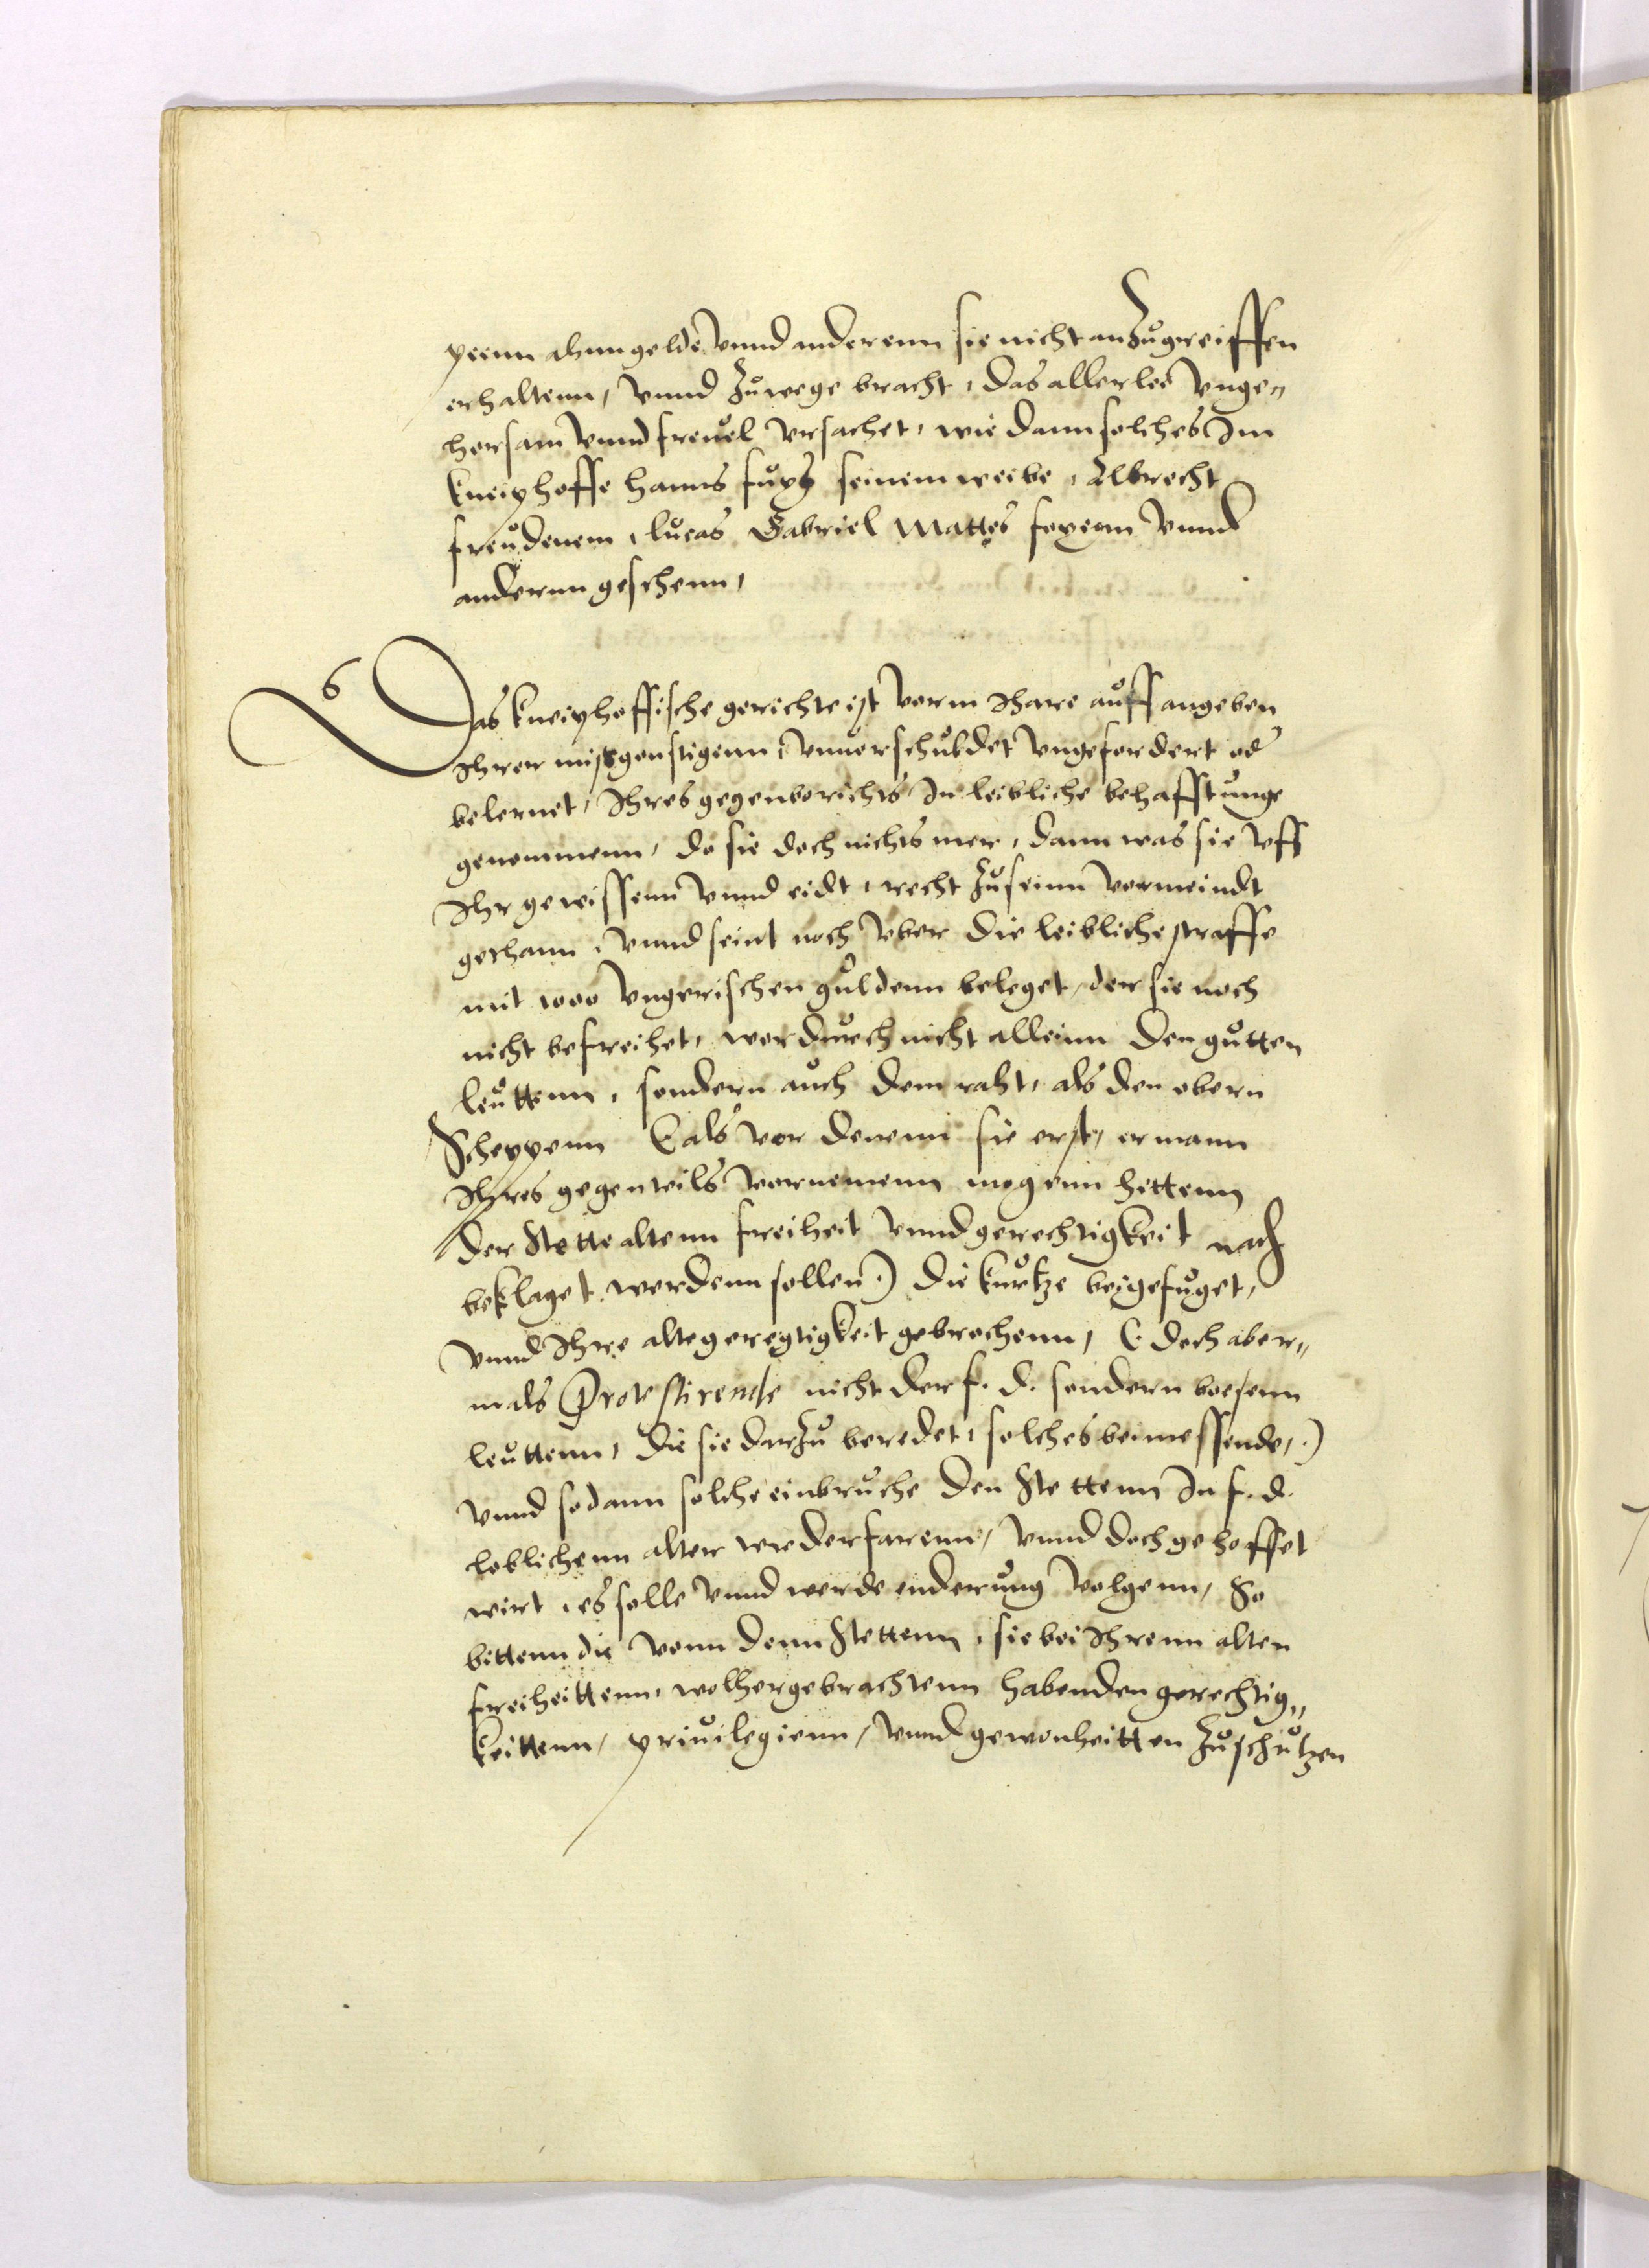 peenn ahnngelde, vnnd anderenn sie nicht anzůgreiffen
erhaltenn, vnnd zůwege bracht, das allerlei vnge„
horsam vnnd freuel vrsachet, wie dann solches Im
kneiphoffe Hanns fůchs seinem weibe, Albrecht
freůdenem, lůcas Gabriel Mattes foxenn vnnd
anderenn geschenn,
6
Das kneiphoffische gerichte ist vorm Ihare aůff angeben
Ihrer misgonstigenn, vnuerschůldet vngefordert od
velernet, Ihres gegenberichts In leibliche behafftůnge
genommenn, do sie doch nichts mer, dann was sie vff
Ihr gewissenn vnnd eidt, recht zůseinn vormeindt
gethann, vnnd seint noch vber die leibliche straffe
mit 1000 vngerischen gůldenn beleget, der sie noch
nicht befreihet, wordůrch nicht alleinn den gůtten
leůttenn, sondern aůch dem raht, als den obern
Scheppenn (: als vor denenn sie erst, ermann
Ihres gegenteils vornemenn mogenn hettenn
der Stette altenn freiheit vnnd gerechtigkeit nach
beklaget werdenn sollen:) die kůrtze beigefůget,
vnnd Ihre alte geregtigkeit gebrochenn, (: doch aber„
mals Protestirende nicht der f. d. sondern boesenn
leůttenn, die sie darzů beredet, solches beimessende,:)
vnnd sodann solche einbrůche den Stettenn In f. d.
loblichenn alter wiederfarenn, vnnd doch gehoffet
wirt, es solle vnnd werde enderůng volgenn, So
bittenn die vonn denn Stettenn, sie bei Ihrenn alten
freiheittenn, wolhergebrachtenn habenden gerechtig„
keittenn, priuilegienn, vnnd gewonheitten zůschůtzen